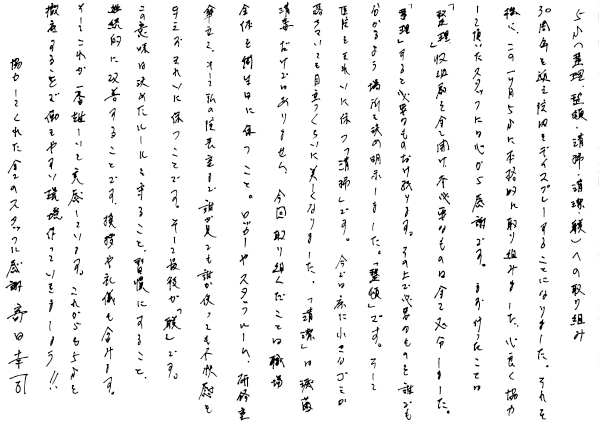 ５Ｓへ（整理・整頓・清掃・清潔・躾）への取り組み
30周年を迎え院内をディスプレーすることになりました。それを
機に、この一月５Ｓに本格的に取り組みました。心良く協力
して頂いたスタッフに心から感謝です。まず行ったことは
「整理」収納扉を全て開け、不必要なものは全て処分しました。
「整理」すると必要なものだけ残ります。その上で必要なものを誰でも
分かるよう場所を決め明示しました。「整頓」です。そして
医院をきれいに保つ「清掃」です。今では床に小さなゴミが
落ちていても目立つくらいに美しくなりました。「清潔」は滅菌
消毒だけではありません。今回取り組んだことは職場
全体を衛生的に保つこと。ロッカーやスタッフルーム、研修室
傘立て、そして私の院長室まで誰が見ても誰が使っても不快感を
与えずきれいに保つことです。そして最後が「躾」です。
この意味は決めたルールを守ること、習慣にすること、
継続的に改善することです。挨拶や礼儀も含みます。
そしてこれが一番難しいと実感しています。これからも５Ｓを
徹底することで働きやすい環境作っていきましょう!!
協力してくれた全てのスタッフに感謝　　田幸司